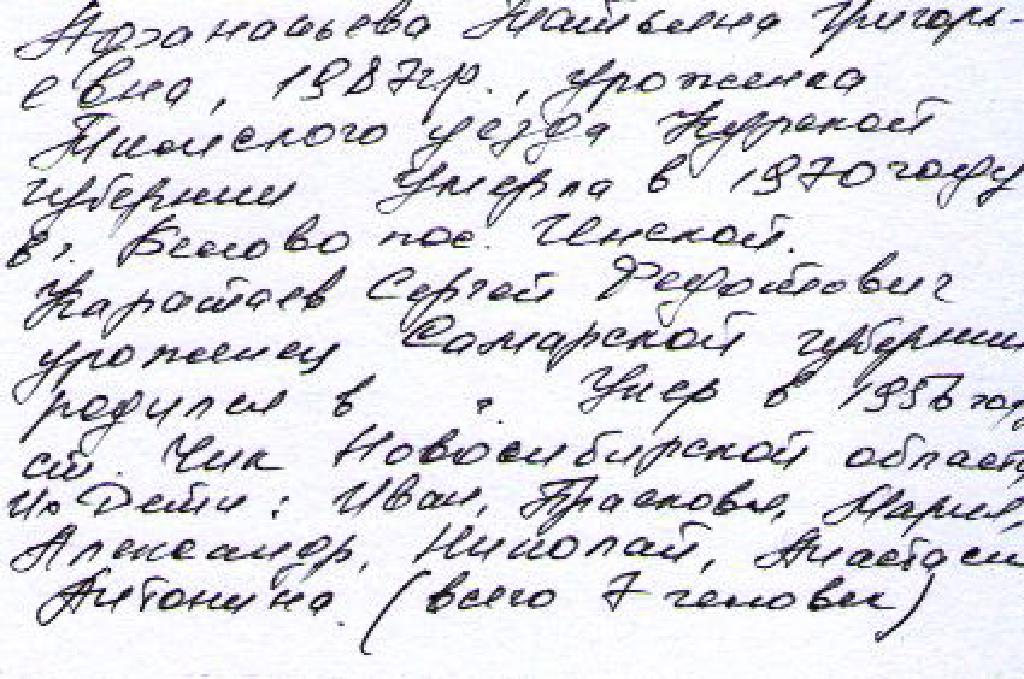 Афанасьева Татьяна Григорь-
евна, 1987гр., уроженка
Тимского уезда Курской
губернии Умерла в 1970 году
в г. Белово пос. Инской.
Каратаев Сергей Федотович
уроженец Самарской губернии
родился в г. Умер в 1956 году
ст. Чик Новосибирской област
Их Дети: Иван, Прасковья, Мария,
Александр, Николай, Анастаси
Антонина. (всего 7 человек)